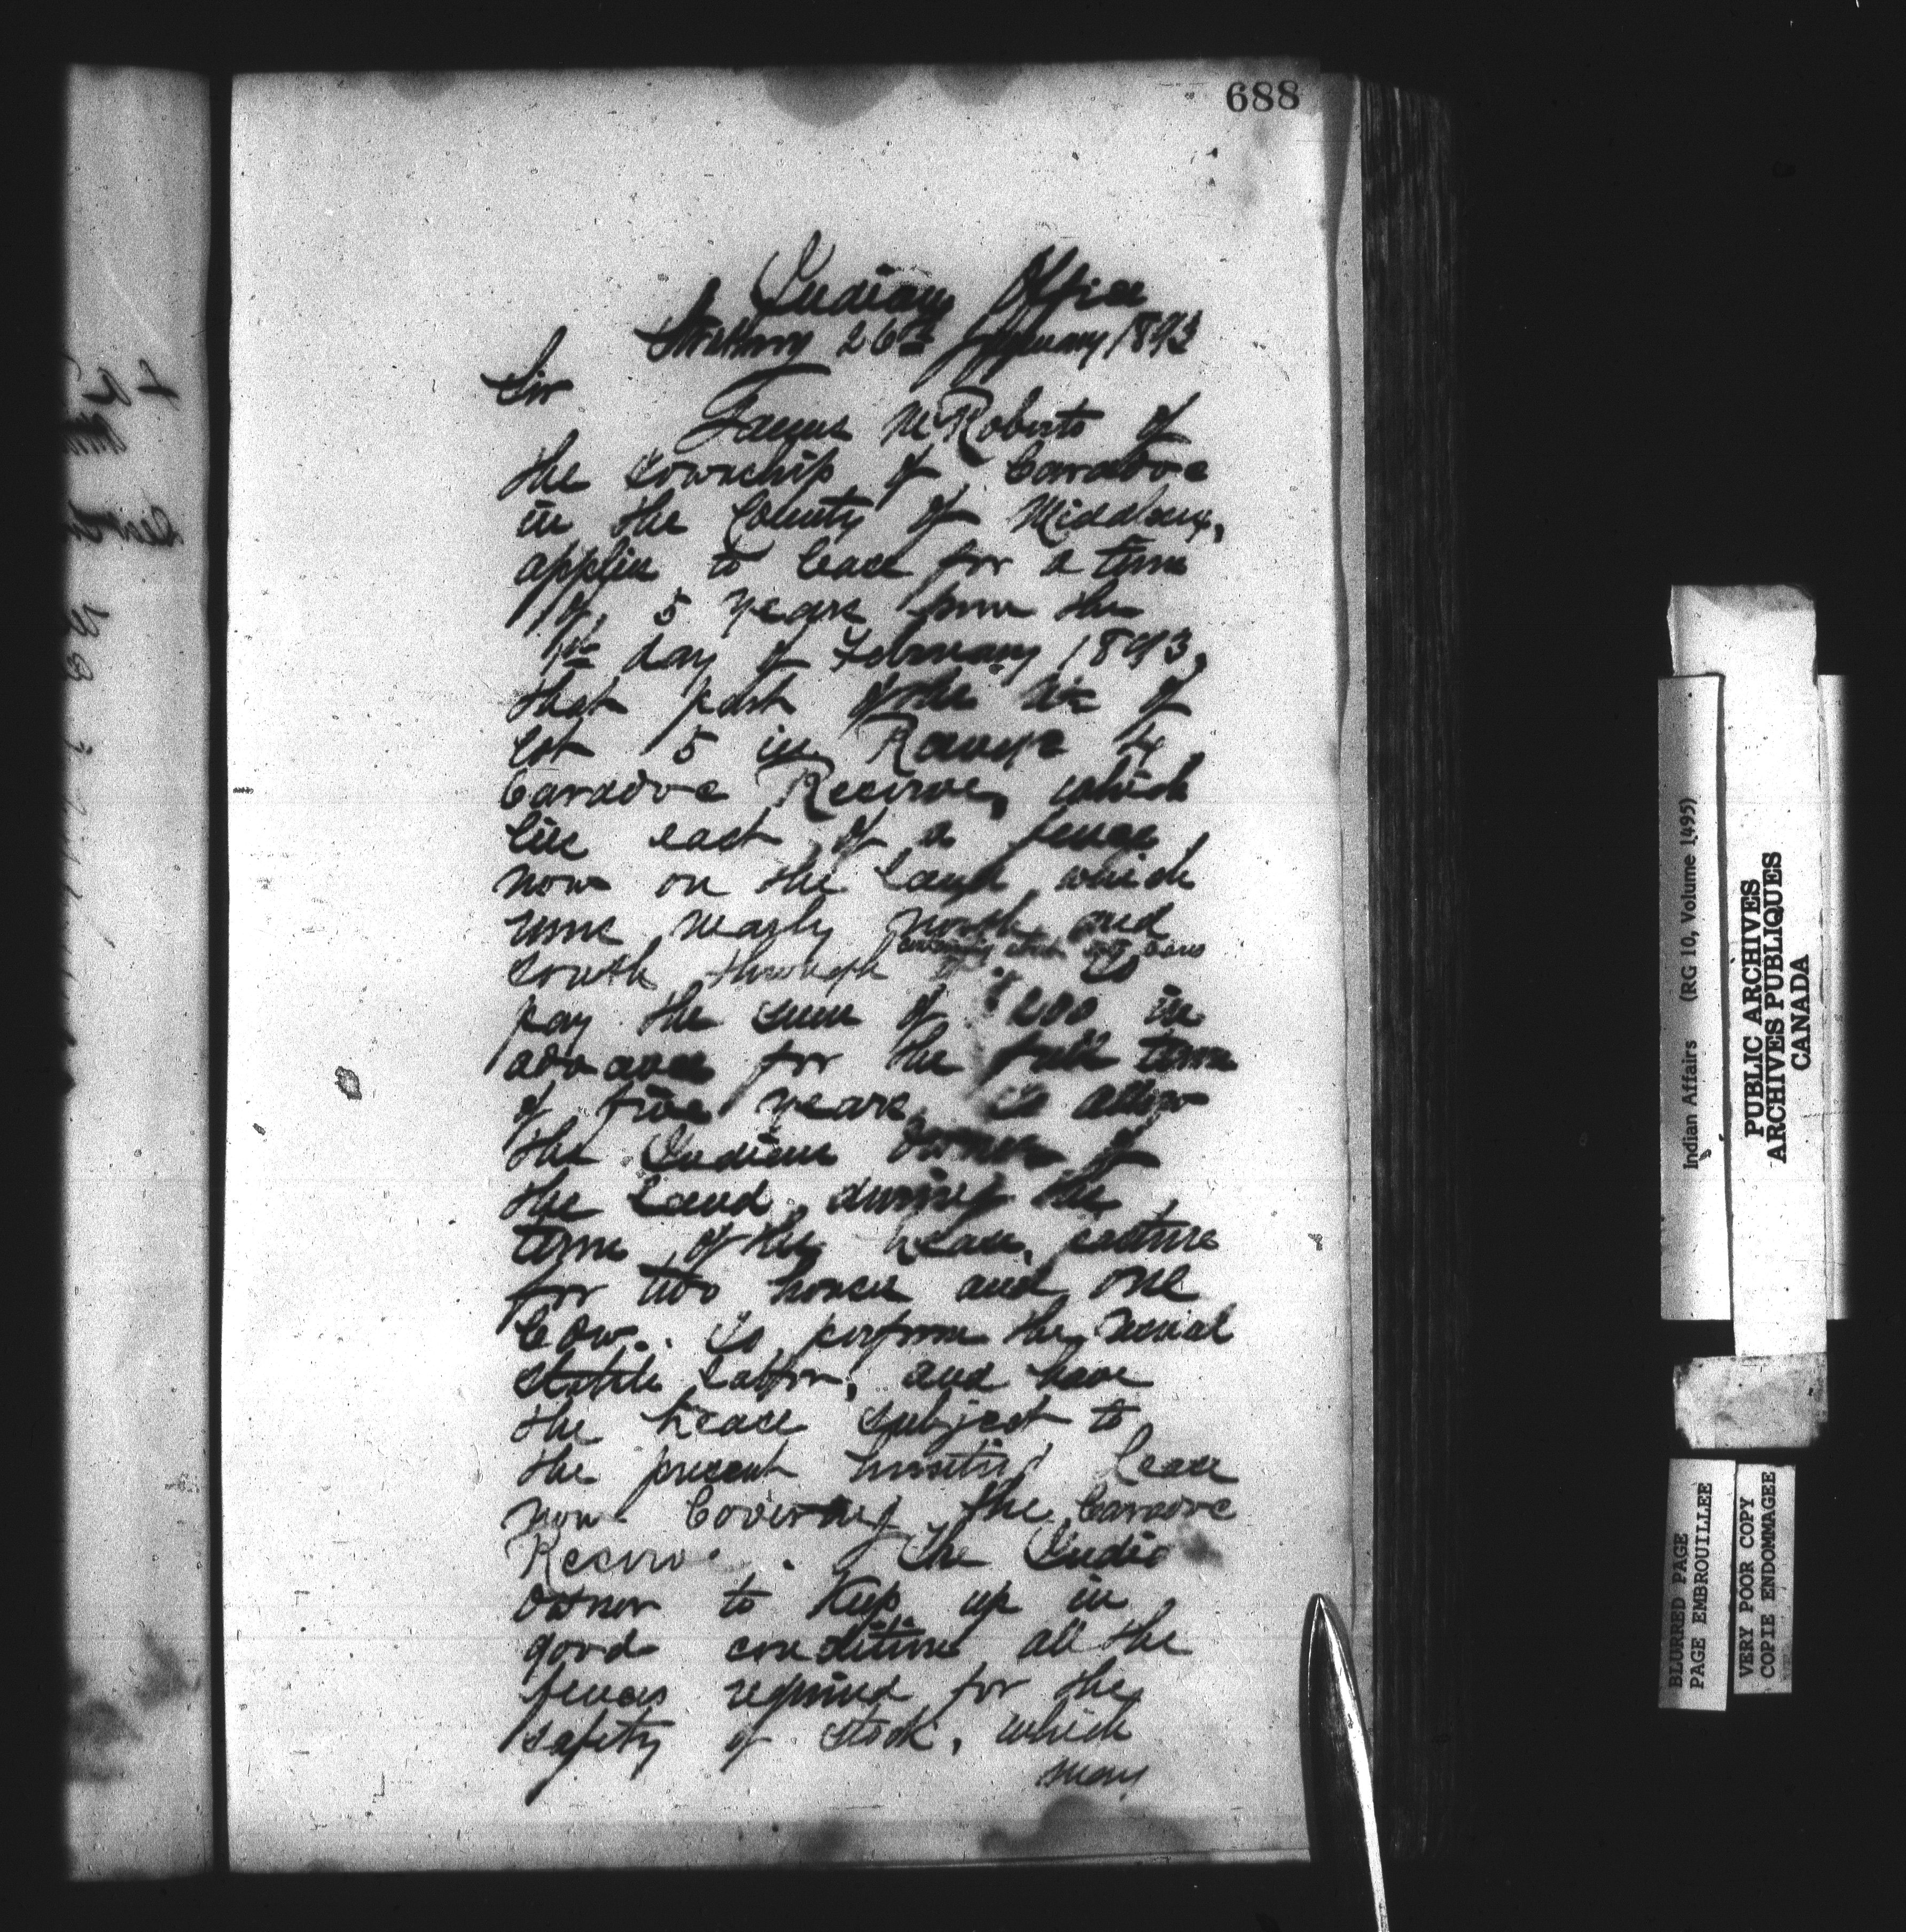 688
Indian Office
Strathroy 26th January 1893
Sir
James McRoberts of
the township of Caradoc
in the County of Middlesex,
applies to lease for a term
of 5 years from the
1st day of February 1893,
that part of the
lot 5 in Range 4
Caradoc Reserve, which
lies east of a fence
now on the Land, which
runs nearly north and
south through
to
pay the sum of $200 in
advance for the full term
of five years, to allow
the Indian owner of
the Land, during the
term of the Lease, pasture
for two horses and one
Cow. To perform the usual
statute Labor, and have
the Lease subject to
the present Lease
now Covering the Caradoc
Reserve. The Indian
owner to Keep up in
good condition all the
fences required for the
safety of stock, which
may
Indian Affairs (RG 10, Volume 1495)
PUBLIC ARCHIVES
ARCHIVES PUBLIQUES
CANADA
BLURRED PAGE
PAGE EMBROUILLEE
VERY POOR COPY
COPIE ENDOMMAGEE